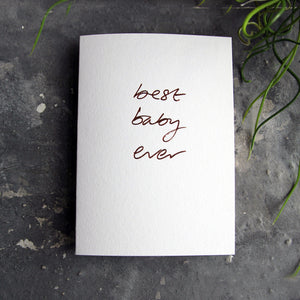 best
baby
ever